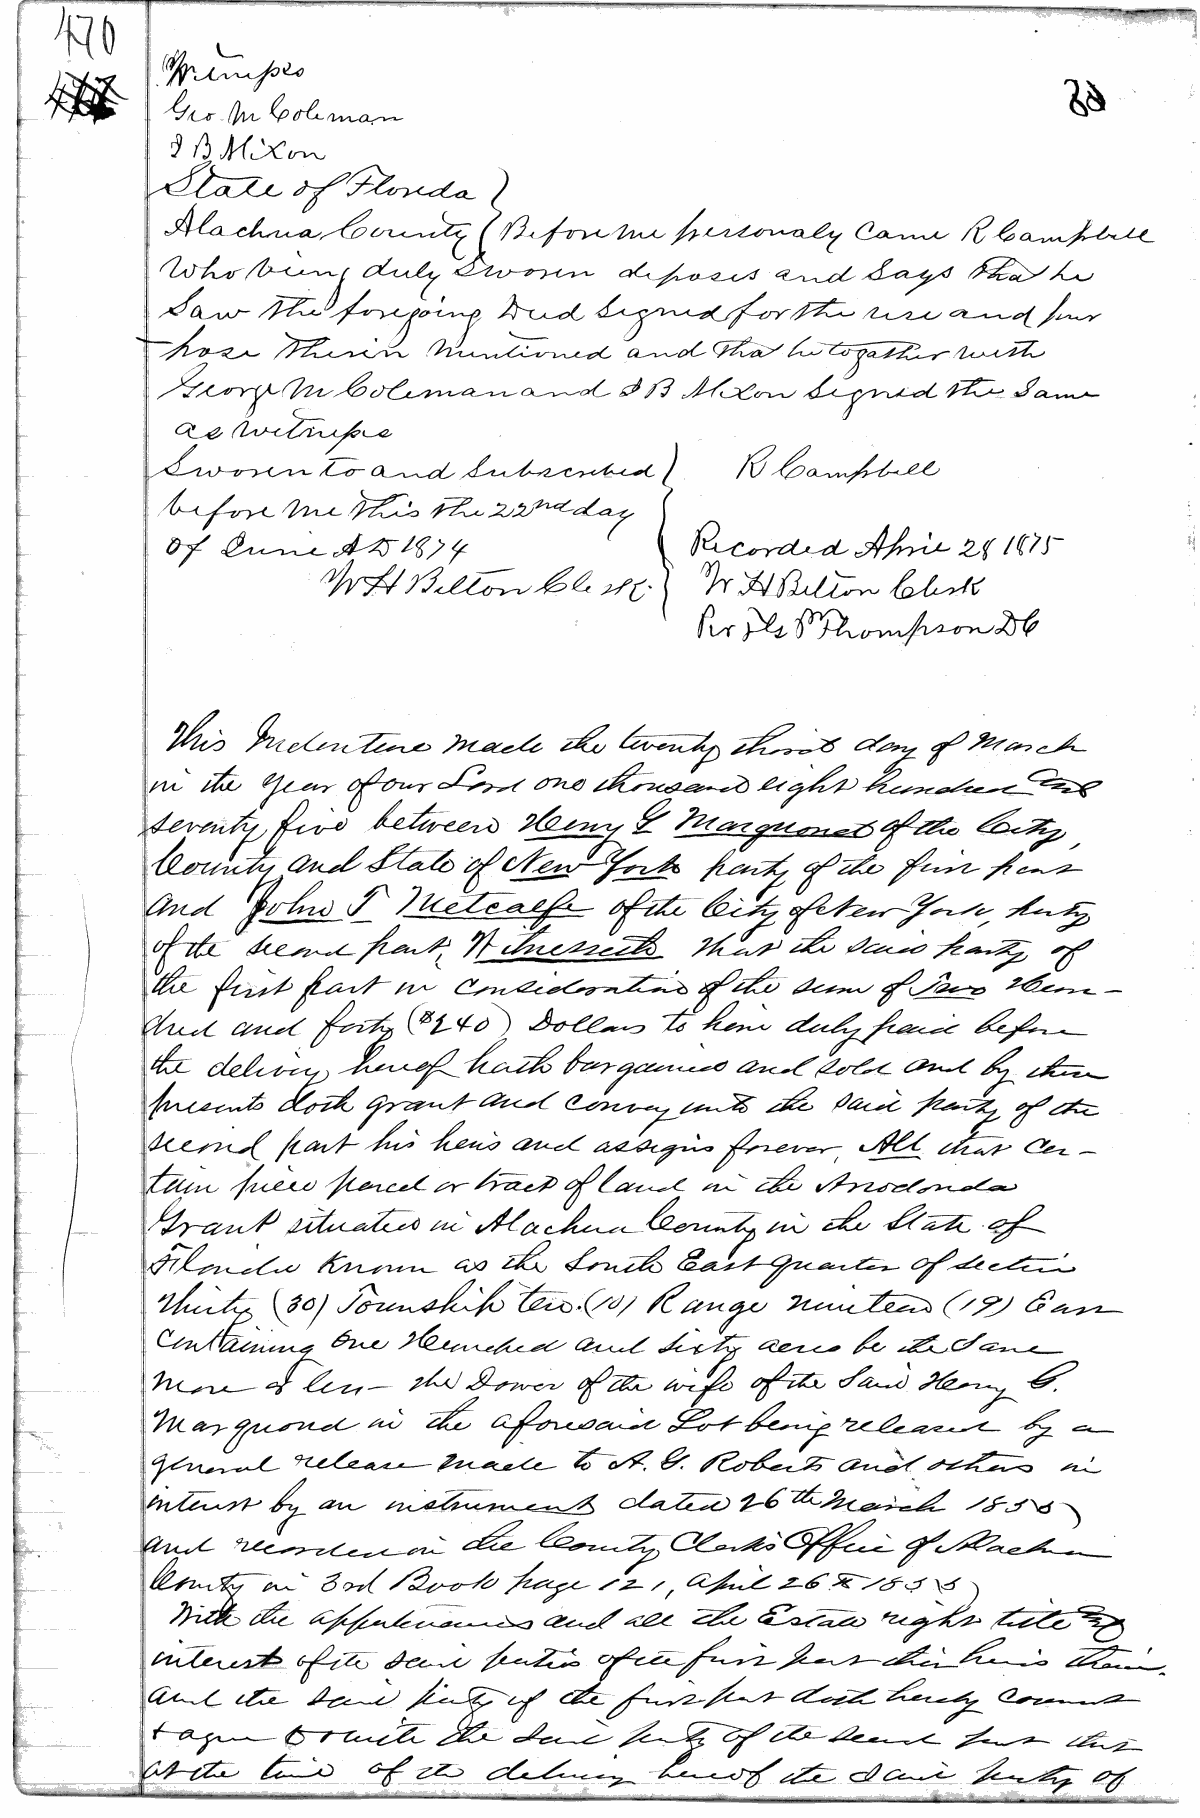 470
Witnesses
Geo. M Coleman
I B Mixon
State of Florida
Alachua County Before me personaly Came R Campbell
Who being duly Sworn deposes and Says that he
Saw the foregoing Deed Signed for the use and pur
pose therin mentioned and that he togather with
George M Coleman and I B Mixon Signed the Same
as Witness
Sworn to and Subscribed R Campbell
before me this the 22nd day
of June AD 1874 Recorded April 28 1875
W H Belton Clerk W H Belton Clerk
Per Thompson DC
This Indenture made the twenty third day of March
in the year of our Lord one thousand eight hundred and
seventy five between Henry G Marquand of the City,
County and State of New York party of the first part
and John T Metcalfe of the City of New York, party
of the second part, Witnesseth that the said party of
the first part in consideration of the sum of Two Hun-
dred and forty ($240) Dollars to him duly paid before
the delivery hereof hath bargained and sold and by these
presents doth grant and convey unto the said party of the
second part his heirs and assigns forever, All that cer-
tain piece parcel or tract of land in the Arredondo
Grant situated in Alachua County in the State of
Florida Known as the South East quarter of section
thirty (30) Township ten (10) Range nineteen (19) East
containing One Hundred and sixty acres be the Same
more or less - the Dower of the wife of the Said Henry G.
Marquand in the aforesaid Lot being released by a
general release made to A. G. Roberts and others in
interest by an instrument dated 26th March 1855
and recorded in the County Clerk's Office of Alachua
County in 3rd Book page 121, April 26th 1855
With the appurtenances and all the Estate right title and
interest of the said parties of the first part their heirs therein.
And the said party of the first part doth hereby covenant
+ agree to + with the said party of the second part that
at the time of the delivery hereof the said party of